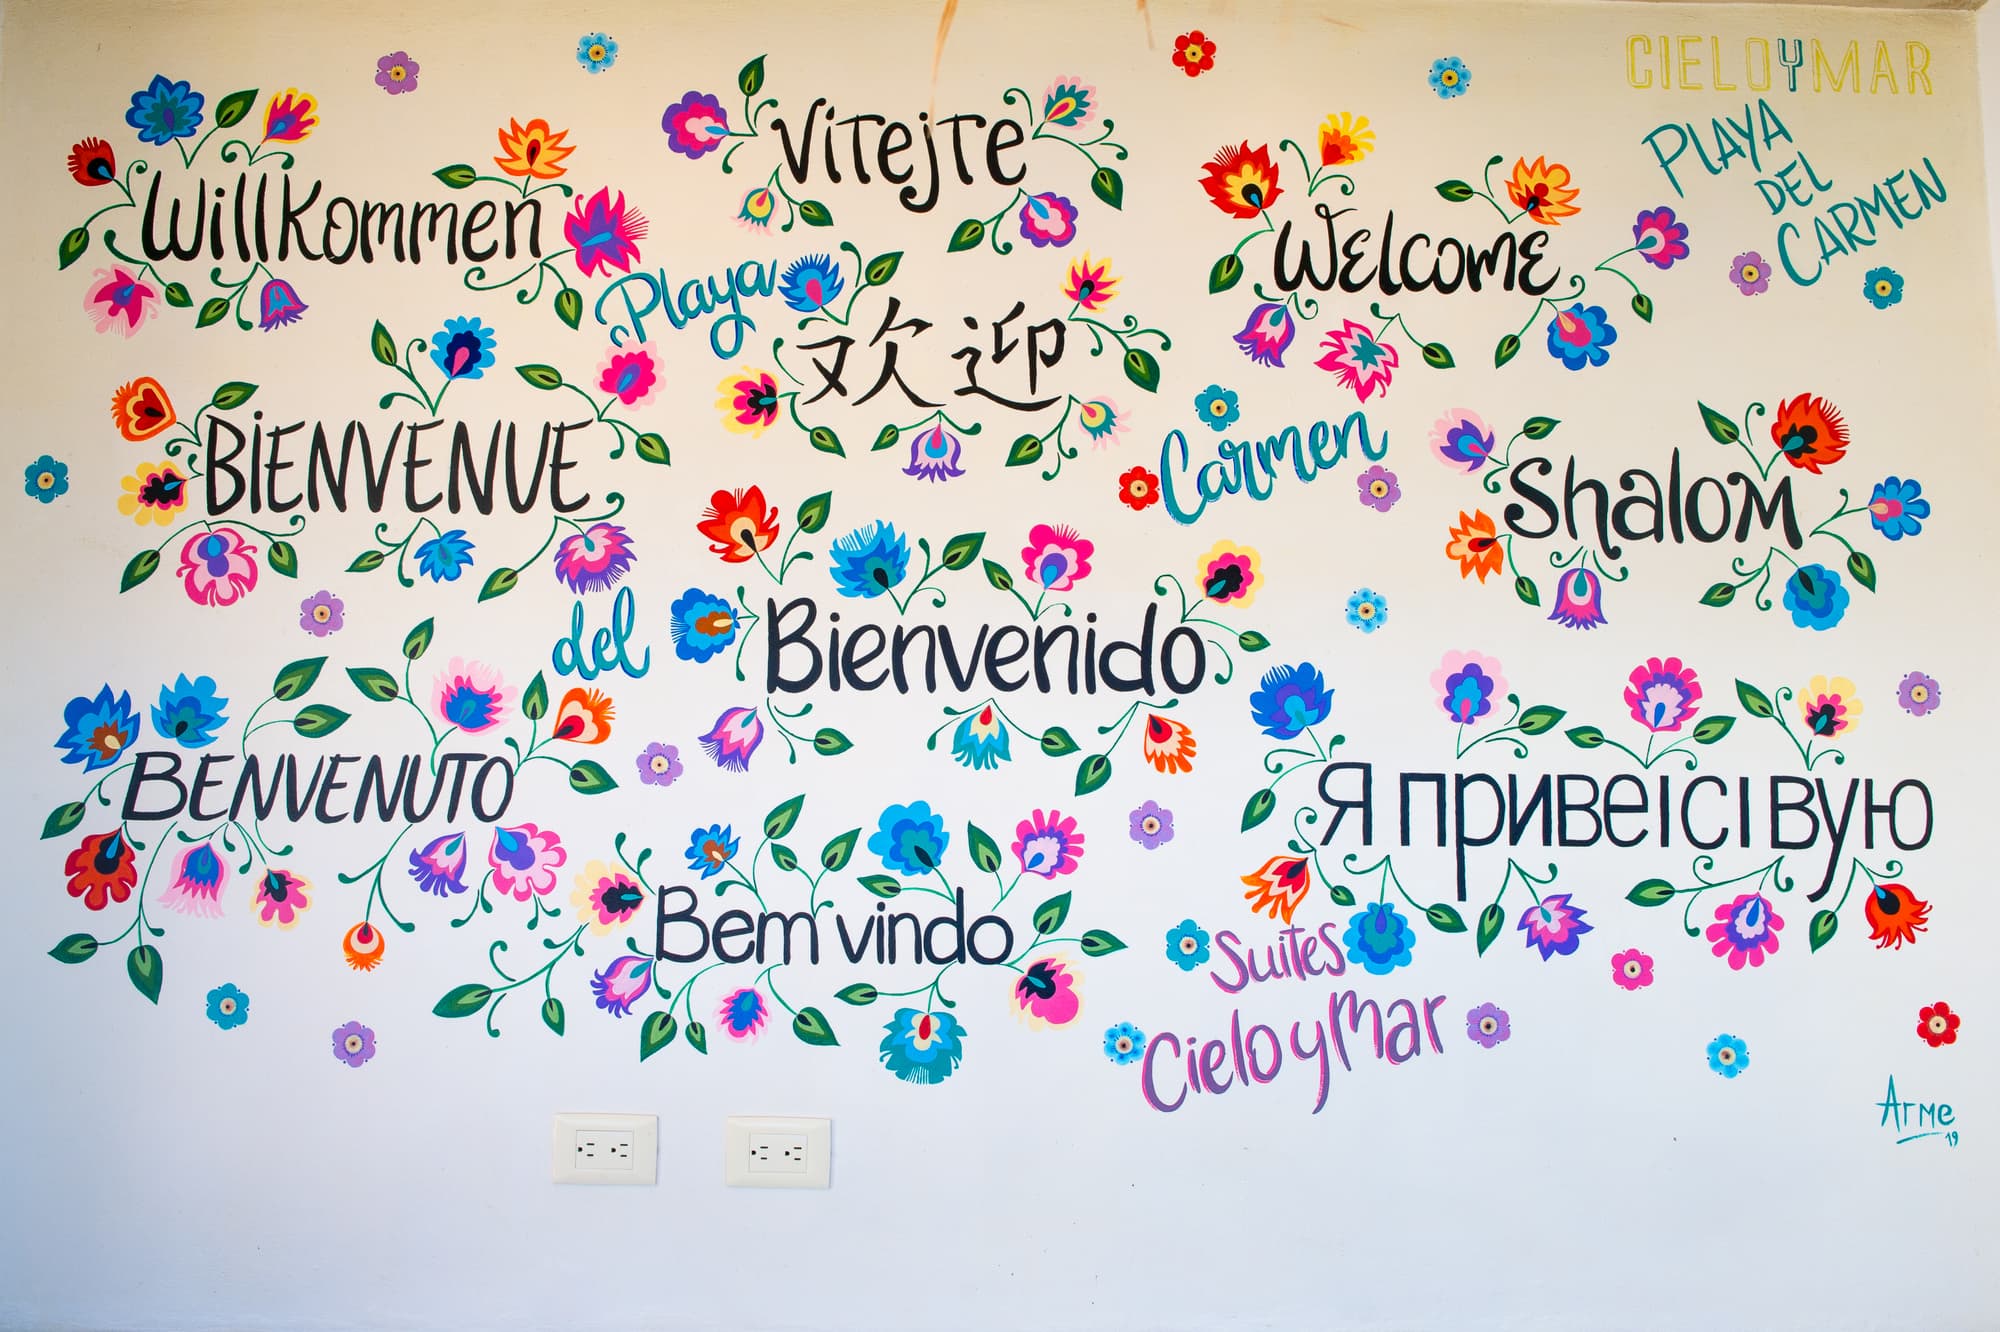 CIELOYMAR
PLAYA
DEL
CARMEN
Willkommen
Vitejte
Welcome
Playa
欢迎
BIENVENUE
Carmen
Shalom
del
Bienvenido
BENVENUTO
Я приветствую
Bem vindo
Suites
Cielo y Mar
Arme
19